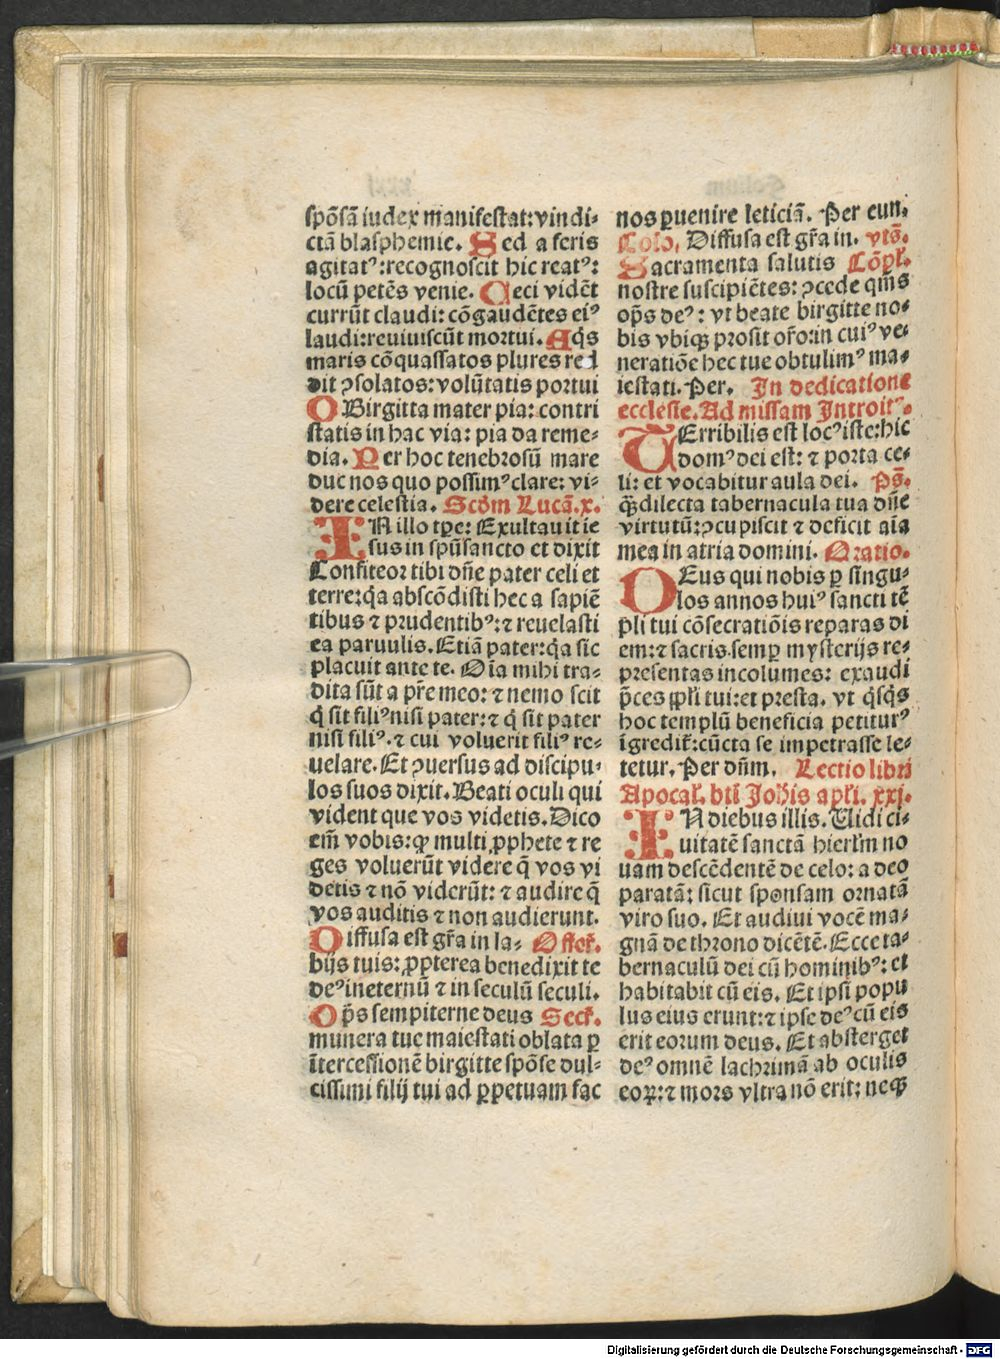 spōsā iudex manifestat: vindi-
ctā blasphemie. Sed a feris
agitatꝰ: recognoscit hic reatꝰ:
locū petēs venie. Ceci vidēt
currūt claudi: cōgaudētes eiꝰ
laudi: reuiuiscūt mortui. Aq̄s
maris cōquassatos plures red
dit ꝯsolatos: volūtatis portui
O Birgitta mater pia: contri
statis in hac via: pia da reme-
dia. Per hoc tenebrosū mare
duc nos quo possimꝰ clare: vi-
dere celestia. Scd̄m Lucā. x.
IN illo tp̄e: Exultauit ie
sus in sp̄usancto et dixit
Confiteor tibi dn̄e pater celi et
terre: q̄a abscōdisti hec a sapiē
tibus ⁊ prudentibꝰ: ⁊ reuelasti
ea paruulis. Etiā pater: q̄a sic
placuit ante te. Oīa mihi tra-
dita sūt a pr̄e meo: ⁊ nemo scit
q̄ sit filiꝰ nisi pater: ⁊ q̄ sit pater
nisi filiꝰ. ⁊ cui voluerit filiꝰ re-
uelare. Et ꝯuersus ad discipu-
los suos dixit. Beati oculi qui
vident que vos videtis. Dico
em̄ vobis: ꝙ multi ꝓphete ⁊ re
ges voluerūt videre q̄ vos vi
detis ⁊ nō viderūt: ⁊ audire q̄
vos auditis ⁊ non audierunt.
Diffusa est gr̄a in la- Offert̄.
bijs tuis: ꝓpterea benedixit te
deꝰ ineternū ⁊ in seculū seculi.
Op̄s sempiterne deus Secr̄.
munera tue maiestati oblata ꝑ
ītercessionē birgitte spōse dul-
cissimi filij tui ad ꝑpetuam fac
nos ꝑuenire leticiā. Per eun.
Cōio. Diffusa est gr̄a in. vts̄.
Sacramenta salutis Cōpl̄.
nostre suscipiētes: ꝯcede q̄ms
op̄s deꝰ: vt beate birgitte no-
bis vbiqꝫ prosit oŕo: in cuiꝰ ve-
neratiōe hec tue obtulimꝰ ma-
iestati. Per. In dedicatione
ecclesie. Ad missam Introitꝰ.
TErribilis est locꝰ iste: hic
domꝰ dei est: ⁊ porta ce-
li: et vocabitur aula dei. Ps̄.
Q̄ dilecta tabernacula tua dn̄e
virtutū: ꝯcupiscit ⁊ deficit aīa
mea in atria domini. Oratio.
DEus qui nobis ꝑ singu-
los annos huiꝰ sancti tē
pli tui cōsecratiōis reparas di
em: ⁊ sacris semꝑ mysterijs re-
presentas incolumes: exaudi
p̄ces ppl̄i tui: et presta. vt q̄sq̄s
hoc templū beneficia petiturꝰ
īgredit̄: cūcta se impetrasse le-
tetur. Per dn̄m. Lectio libri
Apocal̄. bt̄i Joh̄is apl̄i. xxj.
IN diebus illis. Uidi ci-
uitatē sanctā hierl̄m no
uam descēdentē de celo: a deo
paratā: sicut sponsam ornatā
viro suo. Et audiui vocē ma-
gnā de throno dicētē. Ecce ta-
bernaculū dei cū hominibꝰ: et
habitabit cū eis. Et ipsi popu
lus eius erunt: ⁊ ipse deꝰ cū eis
erit eorum deus. Et absterget
deꝰ omnē lachrimā ab oculis
eoꝝ: ⁊ mors vltra nō erit: neqꝫ
Digitalisierung gefördert durch die Deutsche Forschungsgemeinschaft - DFG